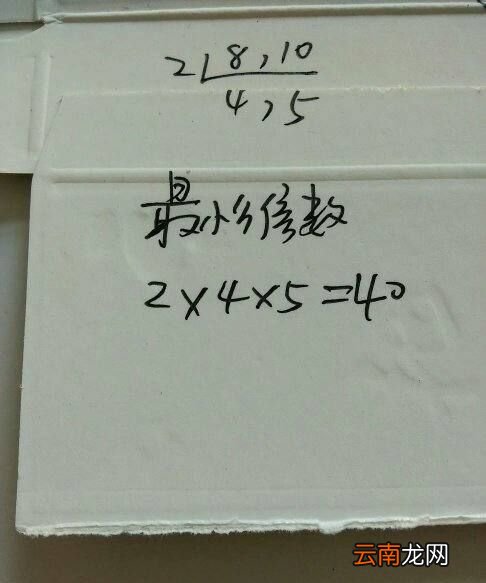 2 8,10
4,5
最小公倍数
2×4×5=40
云南龙网